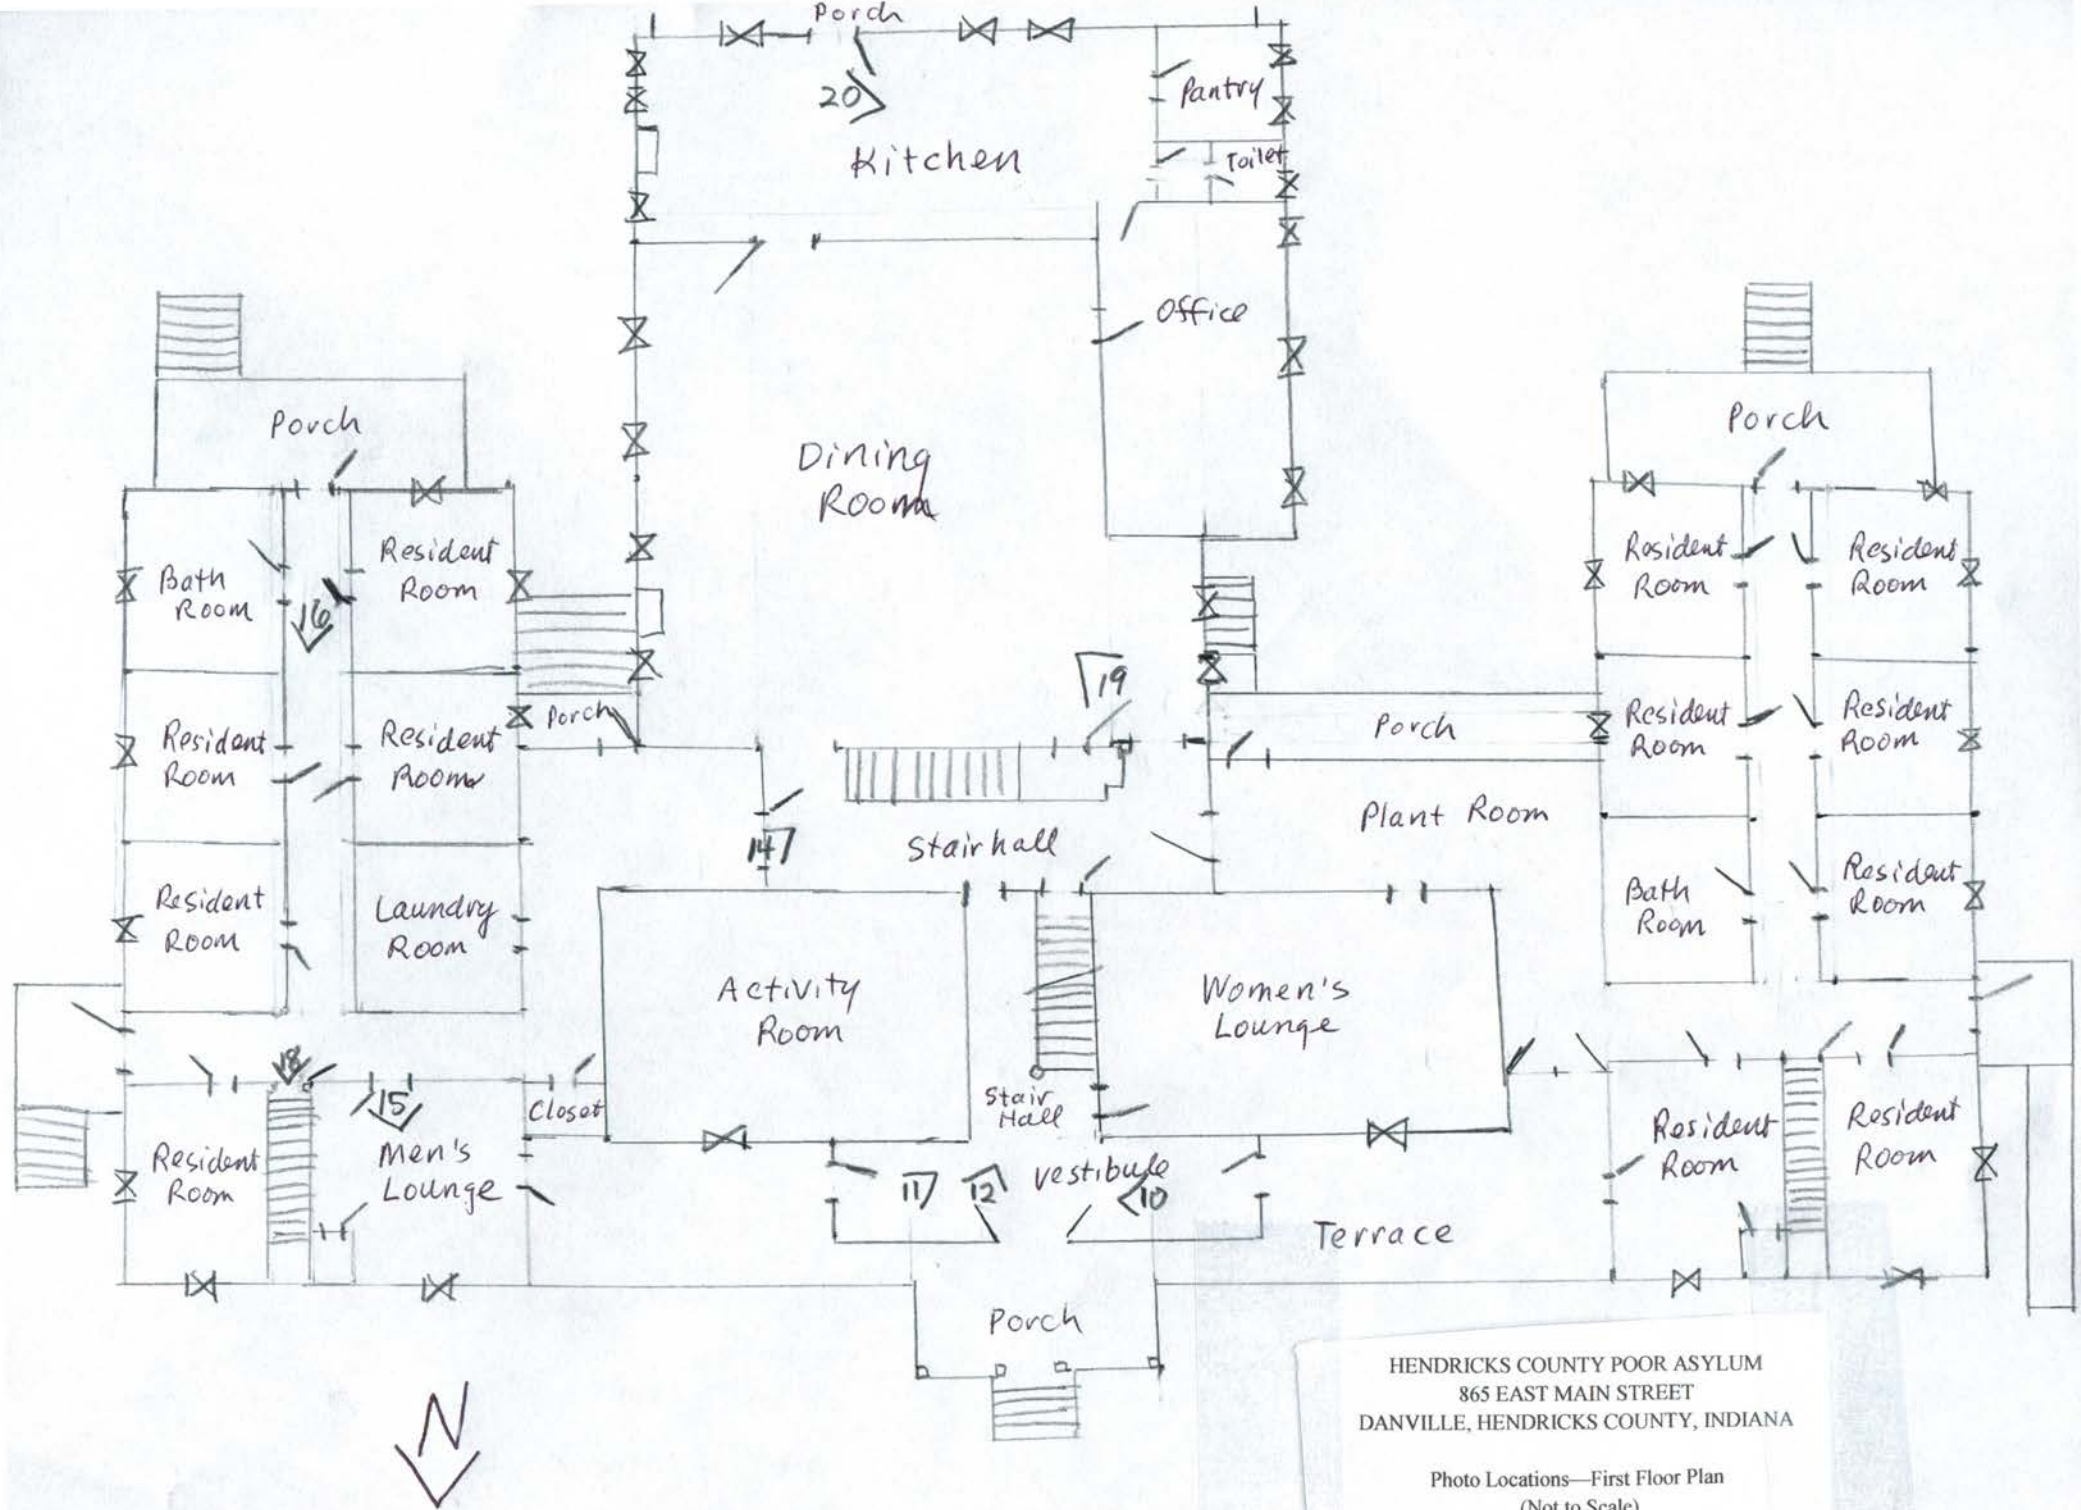 Porch
20
Pantry
Kitchen
Toilet
Office
Porch
Dining
Room
Porch
Bath
Room
16
Resident
Room
Resident
Room
Resident
Room
Resident
Room
Resident
Room
Porch
19
Porch
Resident
Room
Resident
Room
14
Stairhall
Plant Room
Resident
Room
Laundry
Room
Bath
Room
Resident
Room
Activity
Room
Women's
Lounge
18
15
Closet
Stair
Hall
Resident
Room
Men's
Lounge
11
12
Vestibule
10
Terrace
Resident
Room
Resident
Room
Porch
N
HENDRICKS COUNTY POOR ASYLUM
865 EAST MAIN STREET
DANVILLE, HENDRICKS COUNTY, INDIANA
Photo Locations—First Floor Plan
(Not to Scale)